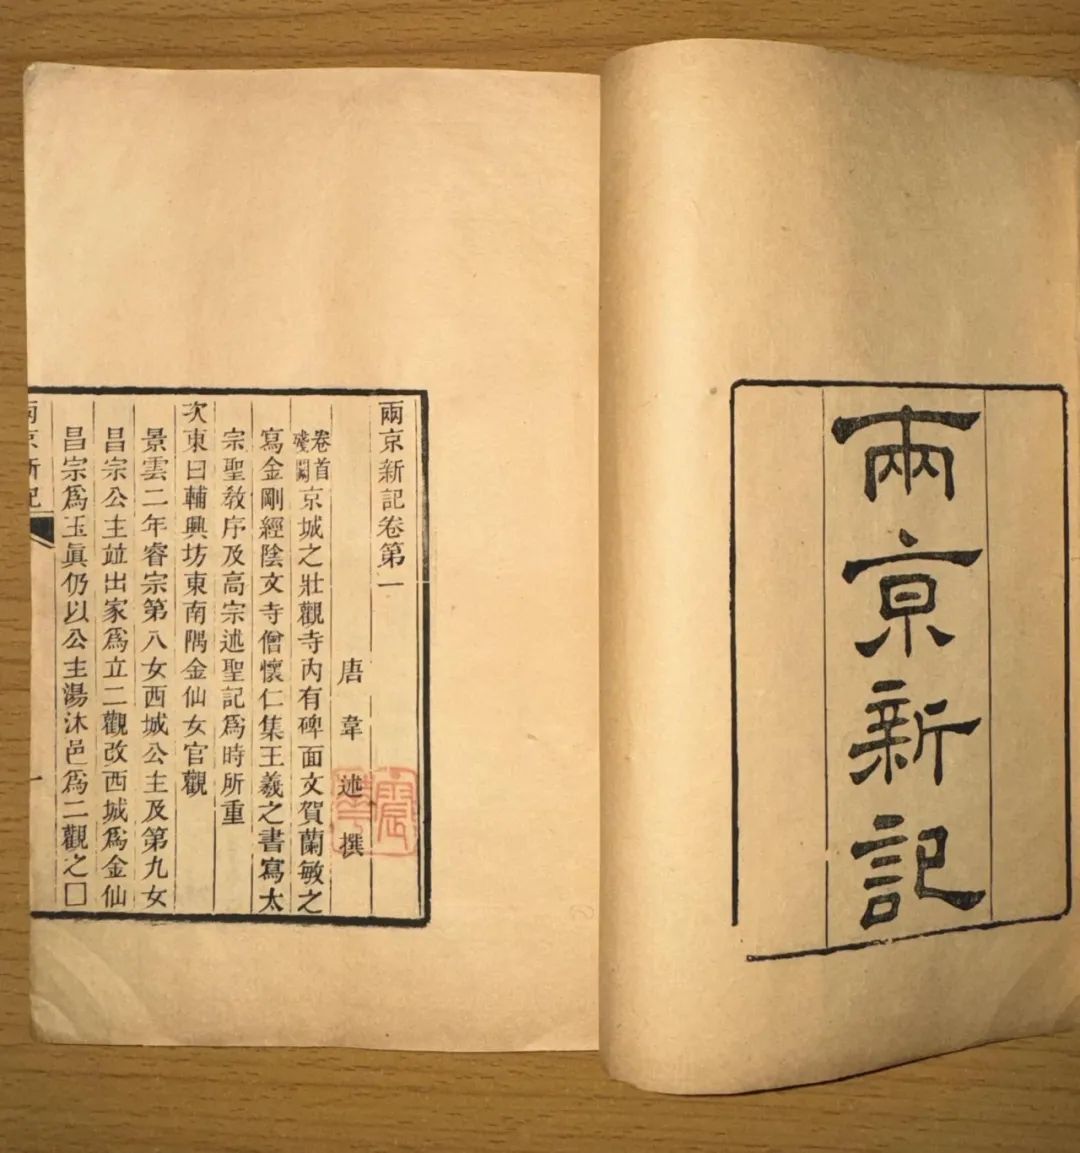 兩京新記
兩京新記卷第一
唐韋述撰
卷首
殘闕
京城之壯觀寺內有碑面文賀蘭敏之
寫金剛經陰文寺僧懷仁集王羲之書寫太
宗聖教序及高宗述聖記爲時所重
次東曰輔興坊東南隅金仙女官觀
景雲二年睿宗第八女西城公主及第九女
昌宗公主並出家爲立二觀改西城爲金仙
昌宗爲玉眞仍以公主湯沐邑爲二觀之□
兩京新記
一